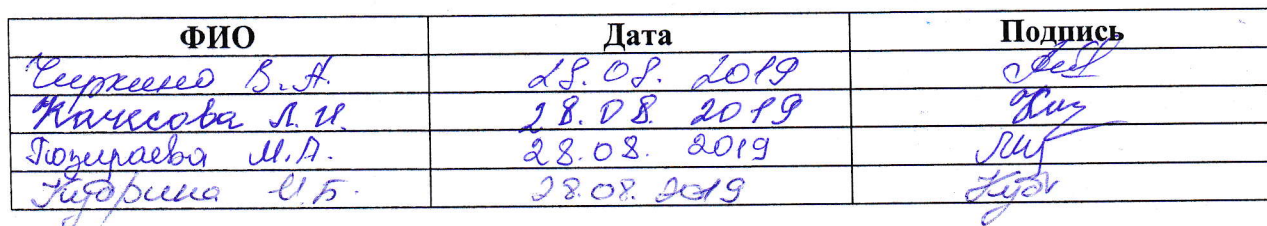 ФИО Дата Подпись
Чиркина В.А. 28.08. 2019
Качесова Л.И. 28.08. 2019
М.А. 28.08. 2019
Кудрина И.Б. 28.08.2019